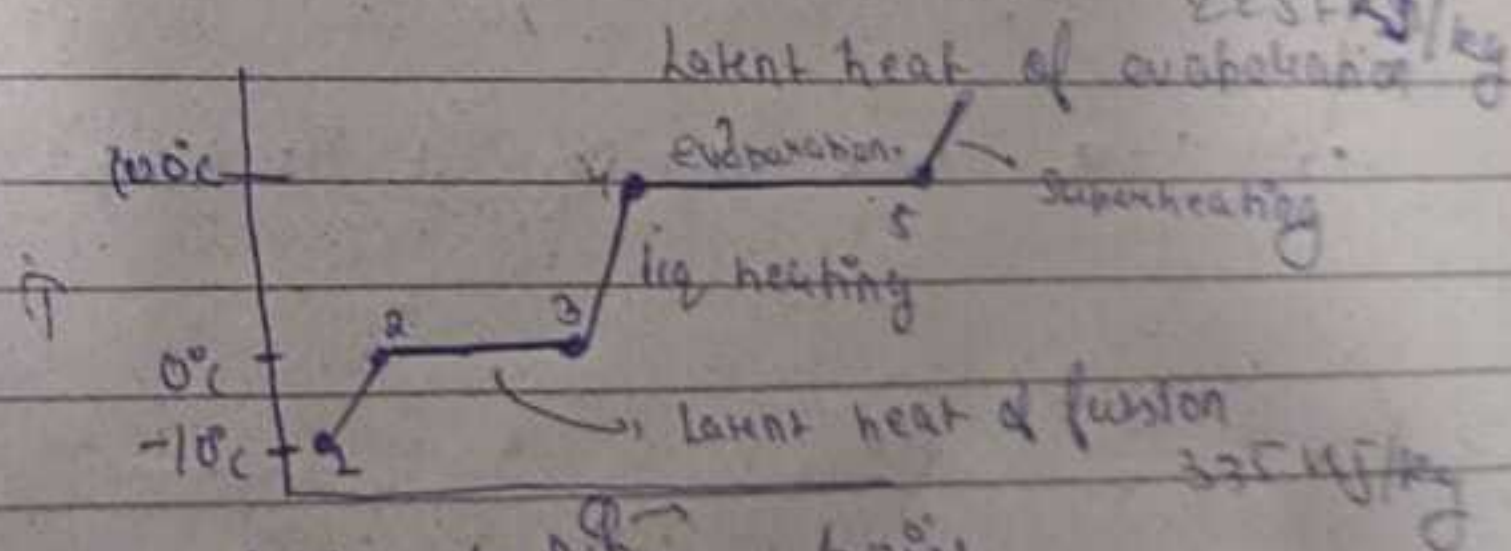 Latent heat of
100°C
4
evaporation.
5
Superheating
T
liq heating
2
3
0°C
-10°C
1
Latent heat of fusion
335 kJ/kg
Q →